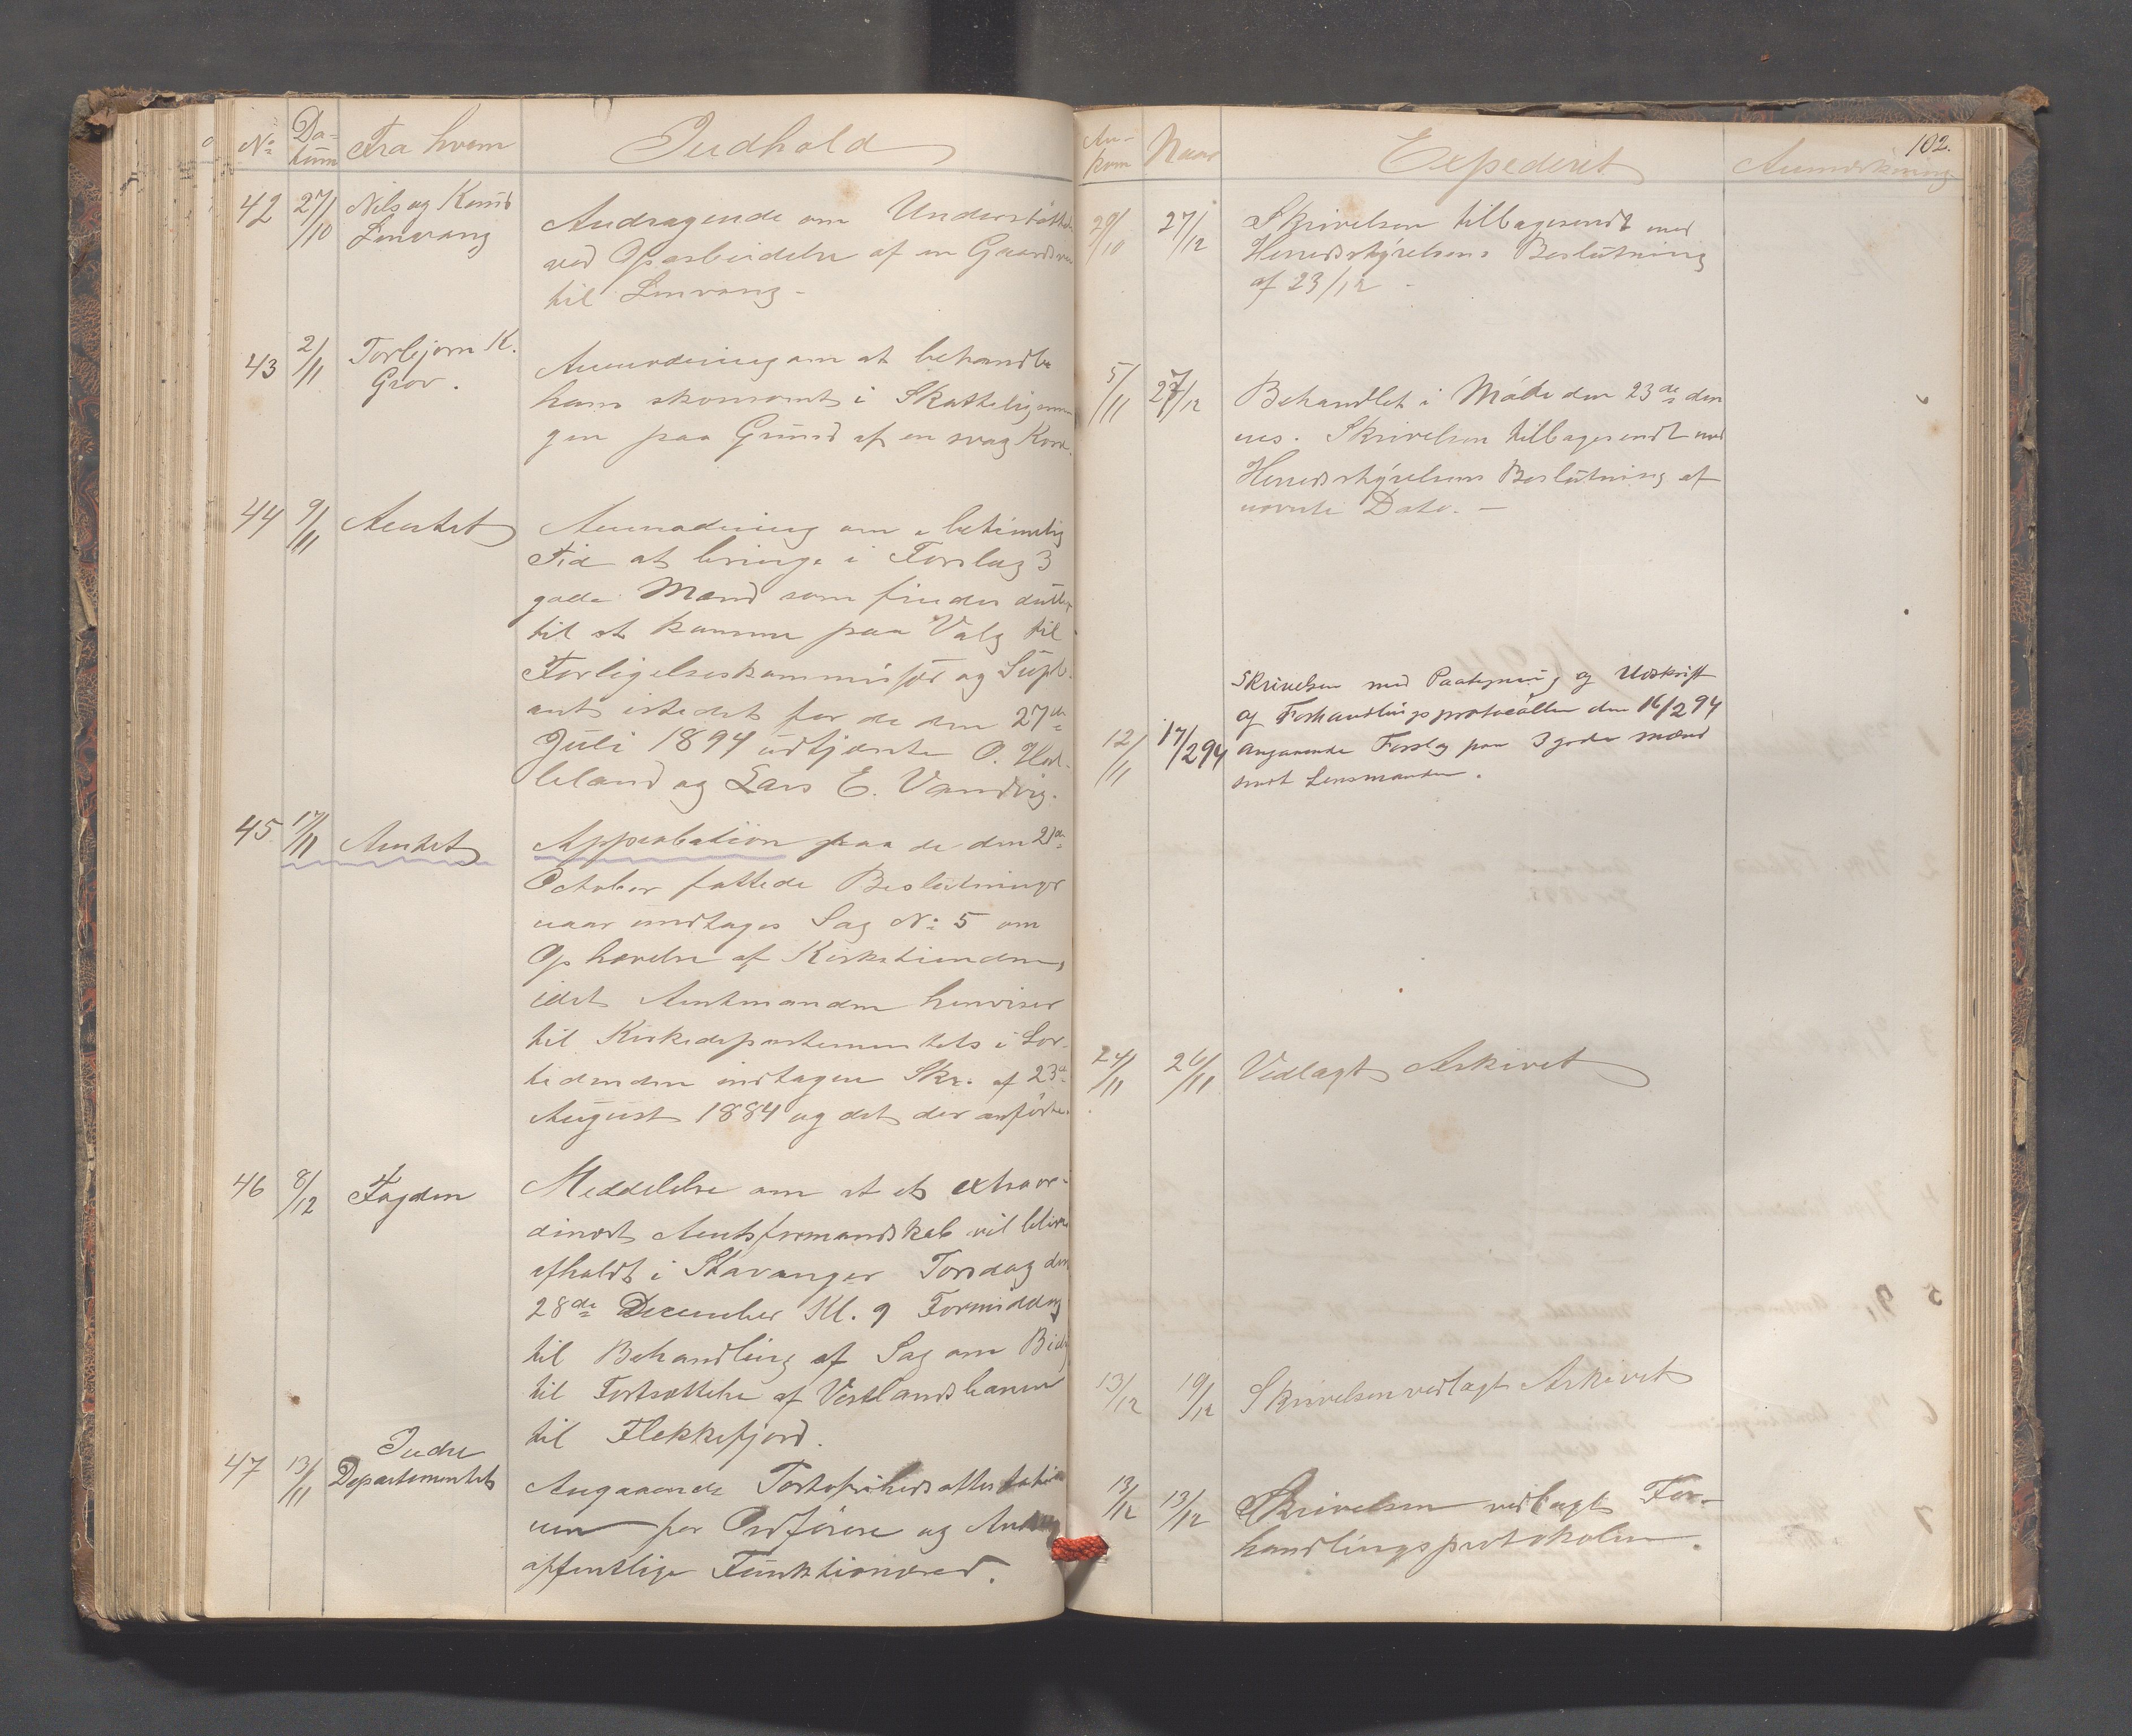 No Da- Fra hvem Indhold
tum
42 27/10 Nils og Knud
Lenvang
Andragende om Understøttelse
ved Oparbeidelse af en Gaardsvei
til Lenvang -
43 2/11 Torbjørn K.
Grov.
Anmodning om at behandle
ham skonsomt i Skatteligning-
gen paa Grund af en svag Kaar.
44 9/11 Amtet Anmodning om i betimelig
Tid at bringe i Forslag 3
gode Mænd som findes
til at komme paa Valg til
Forligelseskommissær og Supl-
ant istedet for de den 27de
Juli 1894 udtjente O.
leland og Lars E. Vandvig.
45 17/11 Amtet Approbation paa de den 21de
October fattede Beslutninger
naar undtages Sag No 5 om
Ophævelse af Kirketienden,
idet Amtmanden henviser
til Kirkedepartementets i Lov-
tidenden indtagne Skr. af 23de
August 1884 og det der anførte.
46 8/12 Fogden Meddelelse om at et extraor-
dinært Amtsformandskab vil blive
afholdt i Stavanger Torsdag den
28de December Kl. 9 Formiddag
til Behandling af Sag om Bidrag
til Fortsættelse af Vestlandsbanen
til Flekkefjord.
47 13/11 Indre
Departementet
Angaaende Portofrihedsattestatio
nen for Ordførere og Andre
offentlige Funktionærer.
102.
An- Naar Expederet Anmærkning
kom
29/10 27/12 Skrivelsen tilbagesendt med
Herredsstyrelsens Beslutning
af 23/12 -
5/11 27/12 Behandlet i Møde den 23de den
nes. Skrivelsen tilbagesendt med
Herredsstyrelsens Beslutning af
nævnte Dato. -
12/11 17/2 94 Skrivelsen med Paategning og Udskrift
af Forhandlingsprotocollen den 16/2 94
angaaende Forslag paa 3 gode Mænd
sendt Lensmanden.
24/11 26/11 Vedlagt Arkivet
13/12 19/12 Skrivelsen vedlagt Arkivet
13/12 13/12 Skrivelsen vedlagt For-
handlingsprotokolen.